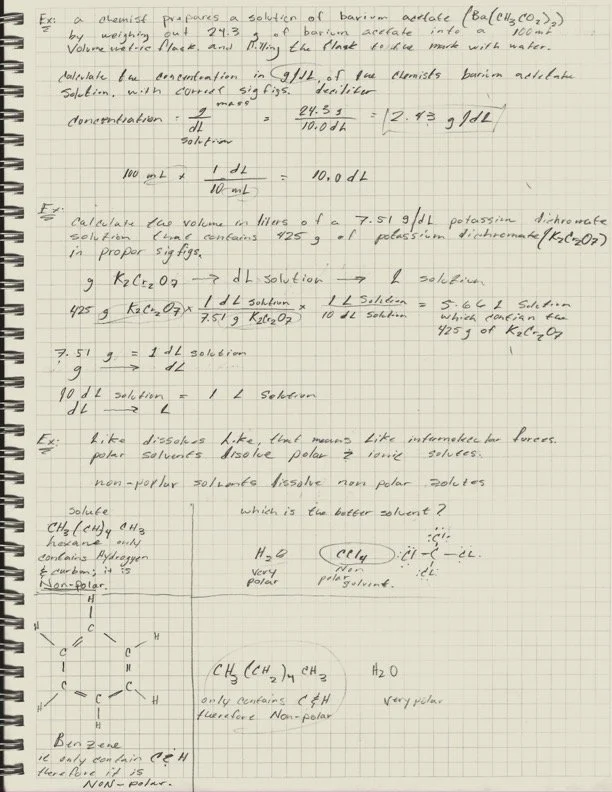 Ex: a chemist prepares a solution of barium acetate (Ba(CH3CO2)2)
by weighing out 24.3 g of barium acetate into a 100 mL
Volumetric flask and filling the flask to the mark with water.
Calculate the concentration in g/dL, of the chemists barium acetate
solution, with correct sigfigs. deciliter
concentration = g mass / dL solution = 24.3 g / 10.0 dL = 2.43 g/dL
100 mL × 1 dL / 10 mL = 10.0 dL
Ex: Calculate the volume in liters of a 7.51 g/dL potassium dichromate
solution that contains 425 g of potassium dichromate (K2Cr2O7)
in proper sigfigs.
g K2Cr2O7 → dL solution → L solution
425 g K2Cr2O7 × 1 dL solution / 7.51 g K2Cr2O7 × 1 L Solution / 10 dL solution = 5.66 L Solution
which contian the
425 g of K2Cr2O7
7.51 g = 1 dL solution
g → dL
10 dL solution = 1 L Solution
dL → L
Ex: Like dissolves Like, that means Like intermolecular forces.
polar solvents disolve polar & ionic solutes.
non-poplur solvents dissolve non polar solutes
solute
CH3(CH)4 CH3
hexane only
contains Hydrogyen
& carbon; it is
Non-polar.
which is the better solvent?
H2O
very
polar
CCl4
Non
polar solvent.
Cl
Cl - C - CL
CL
H
H C H
C C
C C
H C H
H
Benzene
it only contain C & H
therefore it is
NON-polar.
CH3(CH2)4 CH3
only contains C & H
therefore Non-polar
H2O
very polar